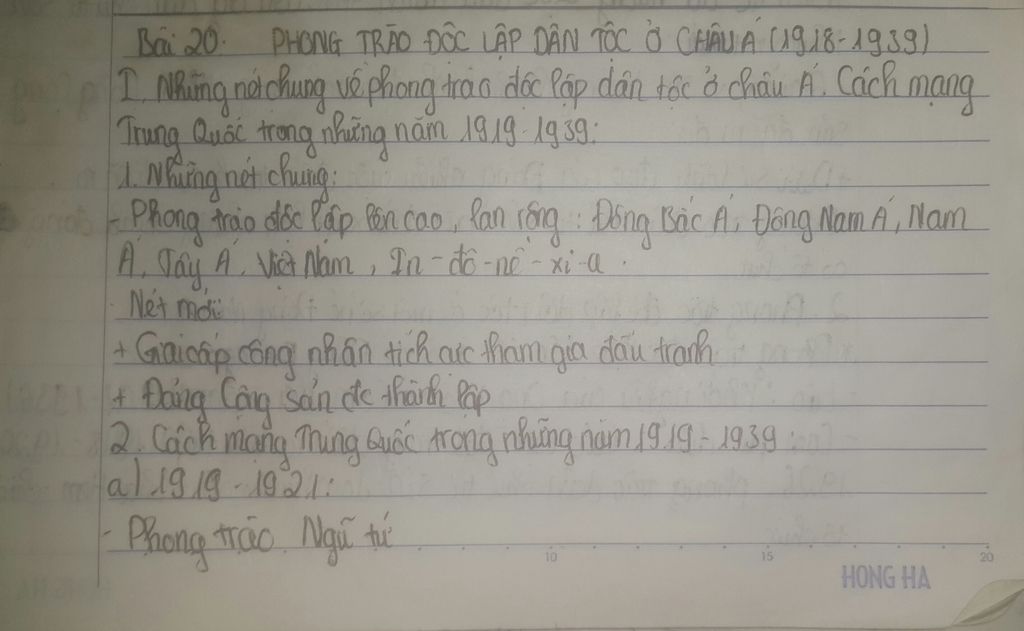 Bài 20: PHONG TRÀO ĐỘC LẬP DÂN TỘC Ở CHÂU Á (1918-1939)
I. Những nét chung về phong trào độc lập dân tộc ở châu Á. Cách mạng
Trung Quốc trong những năm 1919-1939:
1. Những nét chung:
- Phong trào độc lập lên cao, lan rộng: Đông Bắc Á, Đông Nam Á, Nam
Á, Tây Á, Việt Nam, In-đô-nê-xi-a.
- Nét mới:
+ Giai cấp công nhân tích cực tham gia đấu tranh
+ Đảng Cộng sản đc thành lập
2. Cách mạng Trung Quốc trong những năm 1919-1939:
a) 1919-1921:
- Phong trào Ngũ tứ
10 15 20
HONG HA